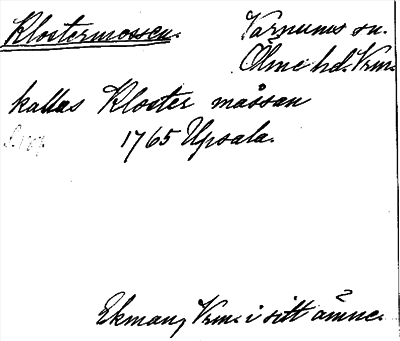 Klostermossen. Varnums sn.
Ölme hd. Vrm.
kallas Kloster måssan
1765 Upsala.
Ekman, Vrm. i sitt ämne.